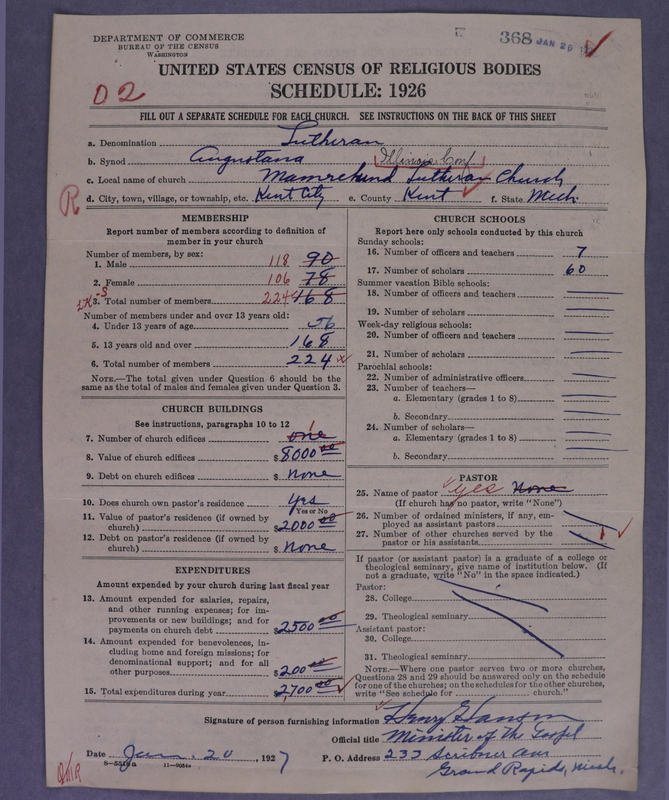 DEPARTMENT OF COMMERCE
BUREAU OF THE CENSUS
WASHINGTON
368 JAN 26
UNITED STATES CENSUS OF RELIGIOUS BODIES
SCHEDULE: 1926
D2
FILL OUT A SEPARATE SCHEDULE FOR EACH CHURCH. SEE INSTRUCTIONS ON THE BACK OF THIS SHEET
a. Denomination Lutheran
b. Synod Augustana Illinois Conf
c. Local name of church Lutheran Church
R d. City, town, village, or township, etc. Kent City e. County Kent f. State Mich.
MEMBERSHIP
Report number of members according to definition of member in your church
Number of members, by sex:
1. Male 118 90
2. Female 106 78
3. Total number of members 224 168
Number of members under and over 13 years old:
4. Under 13 years of age 56
5. 13 years old and over 168
6. Total number of members 224
NOTE.—The total given under Question 6 should be the same as the total of males and females given under Question 3.
CHURCH BUILDINGS
See instructions, paragraphs 10 to 12
7. Number of church edifices one 1
8. Value of church edifices $8000 00
9. Debt on church edifices $ none
10. Does church own pastor's residence Yes
Yes or No
11. Value of pastor's residence (if owned by church) $2000 00
12. Debt on pastor's residence (if owned by church) $ none
EXPENDITURES
Amount expended by your church during last fiscal year
13. Amount expended for salaries, repairs, and other running expenses; for improvements or new buildings; and for payments on church debt $2500 00
14. Amount expended for benevolences, including home and foreign missions; for denominational support; and for all other purposes $200 00
15. Total expenditures during year $2700 00
CHURCH SCHOOLS
Report here only schools conducted by this church
Sunday schools:
16. Number of officers and teachers 7
17. Number of scholars 60
Summer vacation Bible schools:
18. Number of officers and teachers
19. Number of scholars
Week-day religious schools:
20. Number of officers and teachers
21. Number of scholars
Parochial schools:
22. Number of administrative officers
23. Number of teachers—
a. Elementary (grades 1 to 8)
b. Secondary
24. Number of scholars—
a. Elementary (grades 1 to 8)
b. Secondary
PASTOR
25. Name of pastor yes None
(If church has no pastor, write "None")
26. Number of ordained ministers, if any, employed as assistant pastors
27. Number of other churches served by the pastor or his assistants
If pastor (or assistant pastor) is a graduate of a college or theological seminary, give name of institution below. (If not a graduate, write "No" in the space indicated.)
Pastor:
28. College
29. Theological seminary
Assistant pastor:
30. College
31. Theological seminary
NOTE.—Where one pastor serves two or more churches, Questions 28 and 29 should be answered only on the schedule for one of the churches; on the schedules for the other churches, write "See schedule for church."
Signature of person furnishing information Henry G Hanson
Official title Minister of the Gospel
Date Jan. 20, 1927 P. O. Address 233 Scribner Ave
Grand Rapids, Mich.